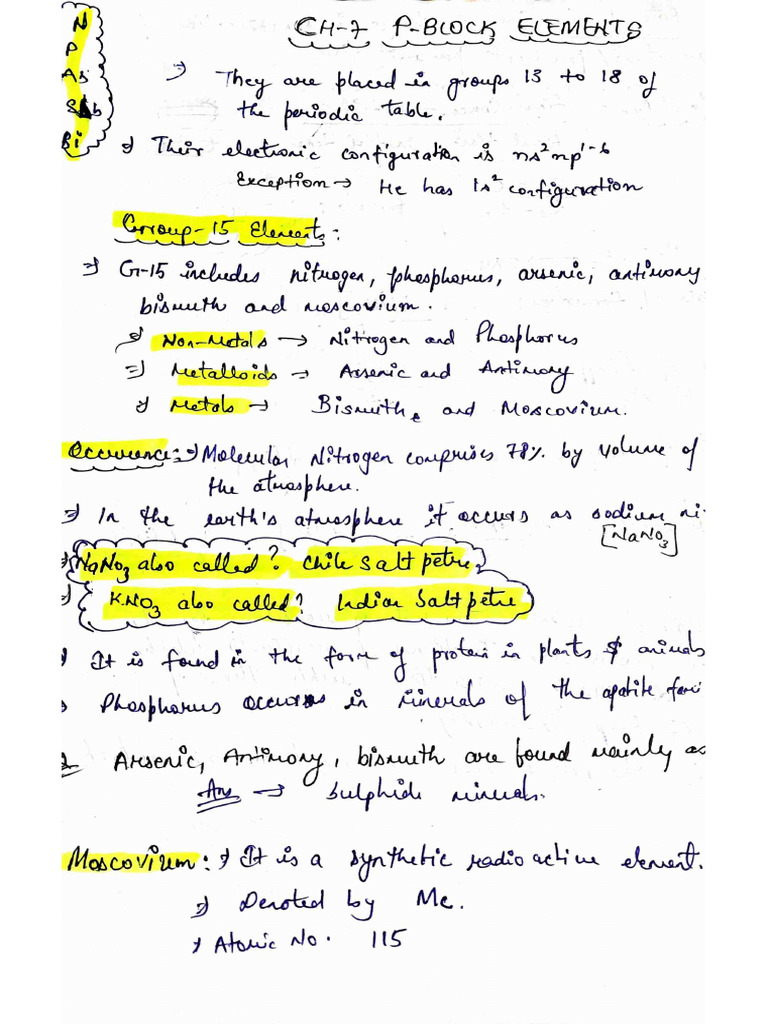 N
P
As
Sb
Bi
CH-7 P-BLOCK ELEMENTS
⇒ They are placed in groups 13 to 18 of
the periodic table.
⇒ Their electronic configuration is ns²np¹⁻⁶
Exception → He has 1s² configuration
Group-15 Elements:
⇒ G-15 includes nitrogen, phosphorus, arsenic, antimony
bismuth and moscovium.
⇒ Non-Metals → Nitrogen and Phosphorus
⇒ Metalloids → Arsenic and Antimony
⇒ Metals → Bismuth and Moscovium.
Occurrence:⇒ Molecular Nitrogen comprises 78% by volume of
the atmosphere.
⇒ In the earth's atmosphere it occurs as sodium ni
[NaNO₃]
⇒ NaNO₃ also called? Chile Salt petre
⇒ KNO₃ also called? Indian Salt petre
⇒ It is found in the form of protein in plants & animals
Phosphorus occurs in minerals of the apatite fami
Arsenic, Antimony, bismuth are found mainly as
Ans → Sulphide minerals.
Moscovium: ⇒ It is a synthetic radioactive element.
⇒ Denoted by Mc.
⇒ Atomic No. 115